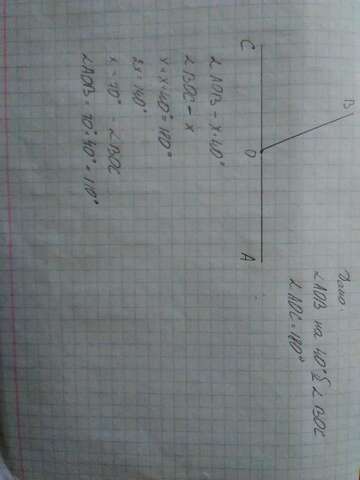 Дано:
∠AOB на 40° б ∠BOC
∠AOC = 180°
B
C
O
A
∠AOB – x+40°
∠BOC – x
x + x + 40° = 180°
2x = 140°
x = 70° – ∠BOC
∠AOB = 70° + 40° = 110°